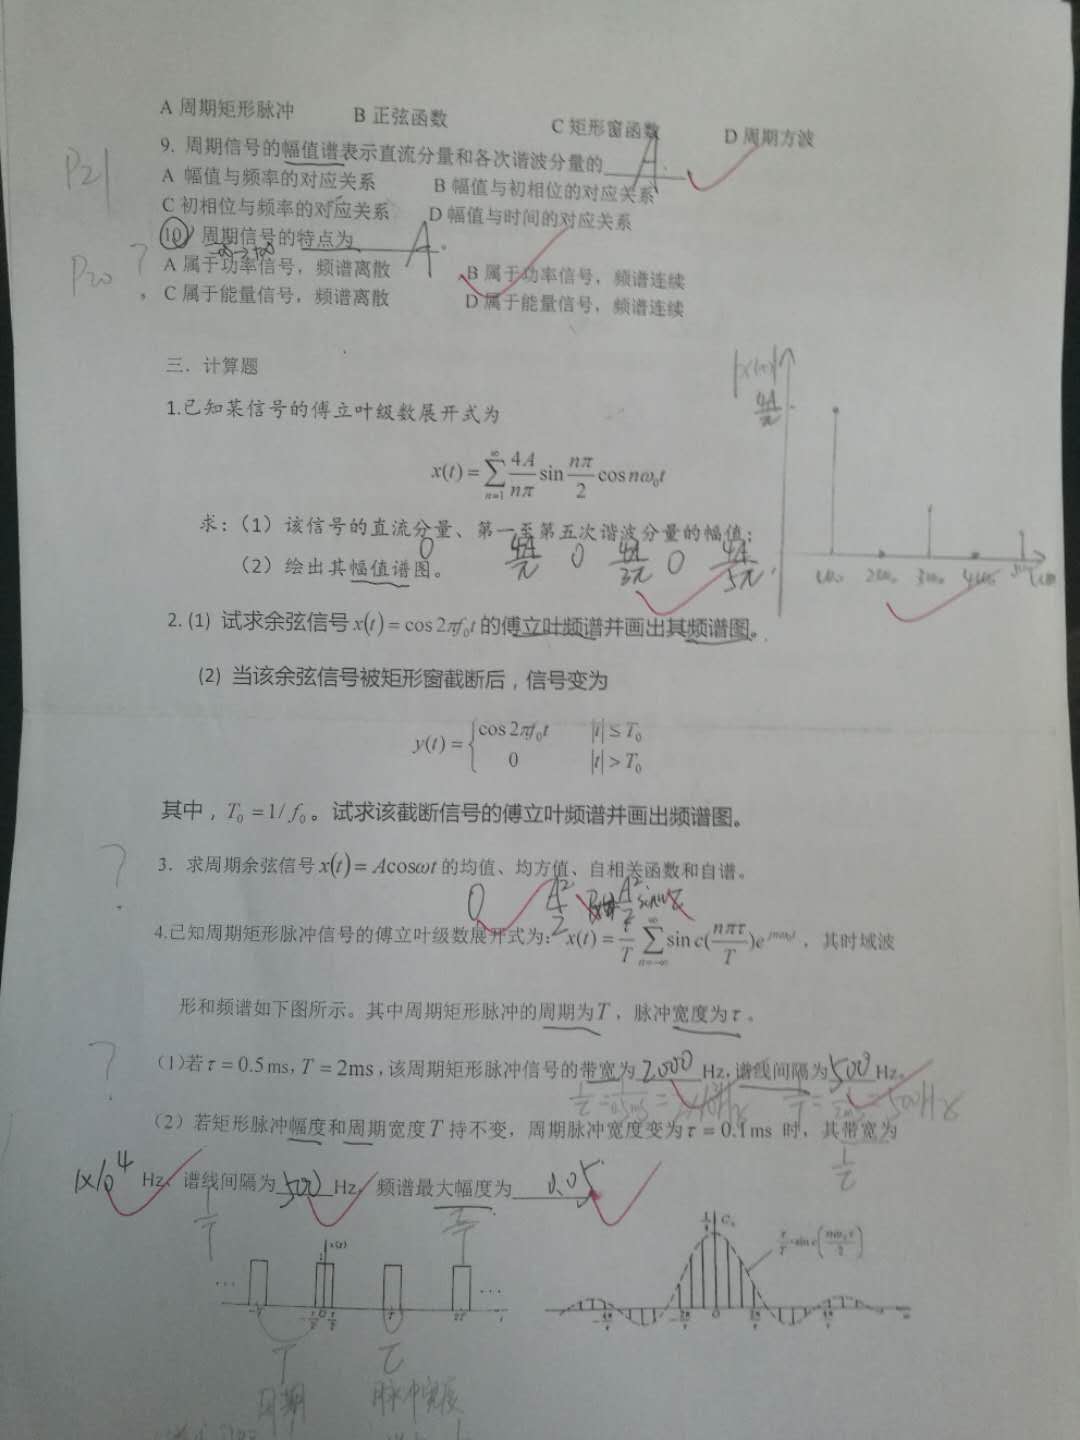 A 周期矩形脉冲 B 正弦函数 C 矩形窗函数 D 周期方波
P21
9. 周期信号的幅值谱表示直流分量和各次谐波分量的 A
A 幅值与频率的对应关系 B 幅值与初相位的对应关系
C 初相位与频率的对应关系 D 幅值与时间的对应关系
10 周期信号的特点为 A 。
-∞→+∞
P20 ?
A 属于功率信号，频谱离散 B 属于功率信号，频谱连续
C 属于能量信号，频谱离散 D 属于能量信号，频谱连续
三．计算题
1.已知某信号的傅立叶级数展开式为
x(t) = ∑_{n=1}^{∞} 4A/nπ sin nπ/2 cos nω₀t
求：（1）该信号的直流分量、第一至第五次谐波分量的幅值；
0 4A/π 0 4A/3π 0 4A/5π
（2）绘出其幅值谱图。
4A/π
ω₀ 2ω₀ 3ω₀ 4ω₀
2. (1) 试求余弦信号x(t) = cos 2πf₀t 的傅立叶频谱并画出其频谱图。
(2) 当该余弦信号被矩形窗截断后，信号变为
y(t) = { cos 2πf₀t |t| ≤ T₀
0 |t| > T₀
其中，T₀ = 1/ f₀。试求该截断信号的傅立叶频谱并画出频谱图。
?
3．求周期余弦信号x(t) = Acosωt 的均值、均方值、自相关函数和自谱。
0 A²/2 A²/2
4.已知周期矩形脉冲信号的傅立叶级数展开式为：x(t) = τ/T ∑_{n=-∞}^{∞} sin c(nπτ/T)e^{jnω₀t}，其时域波
形和频谱如下图所示。其中周期矩形脉冲的周期为T，脉冲宽度为τ。
?
（1)若τ = 0.5 ms, T = 2ms，该周期矩形脉冲信号的带宽为 2000 Hz，谱线间隔为 500 Hz。
1/τ = 1/0.5ms = 1/T = 1/2ms = 500Hz
（2）若矩形脉冲幅度和周期宽度T 持不变，周期脉冲宽度变为τ = 0.1ms 时，其带宽为
1/τ
1×10⁴ Hz、谱线间隔为 500 Hz，频谱最大幅度为 0.05
1/T τ/T
x(t)
··· ···
Cₙ
T τ
周期 脉冲宽度